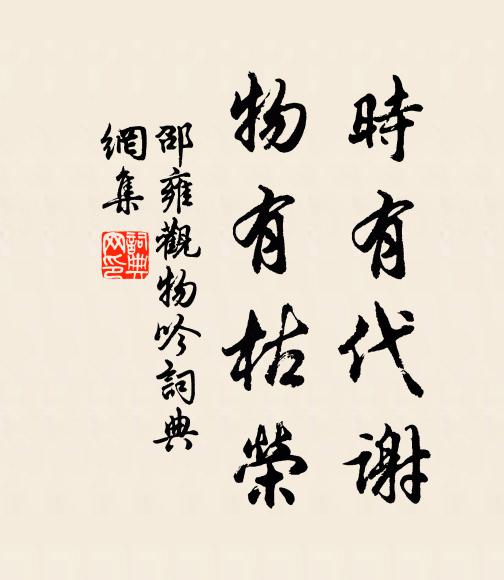 時有代謝
物有枯榮
邵雍觀物吟詞典
網集
詞典
网印